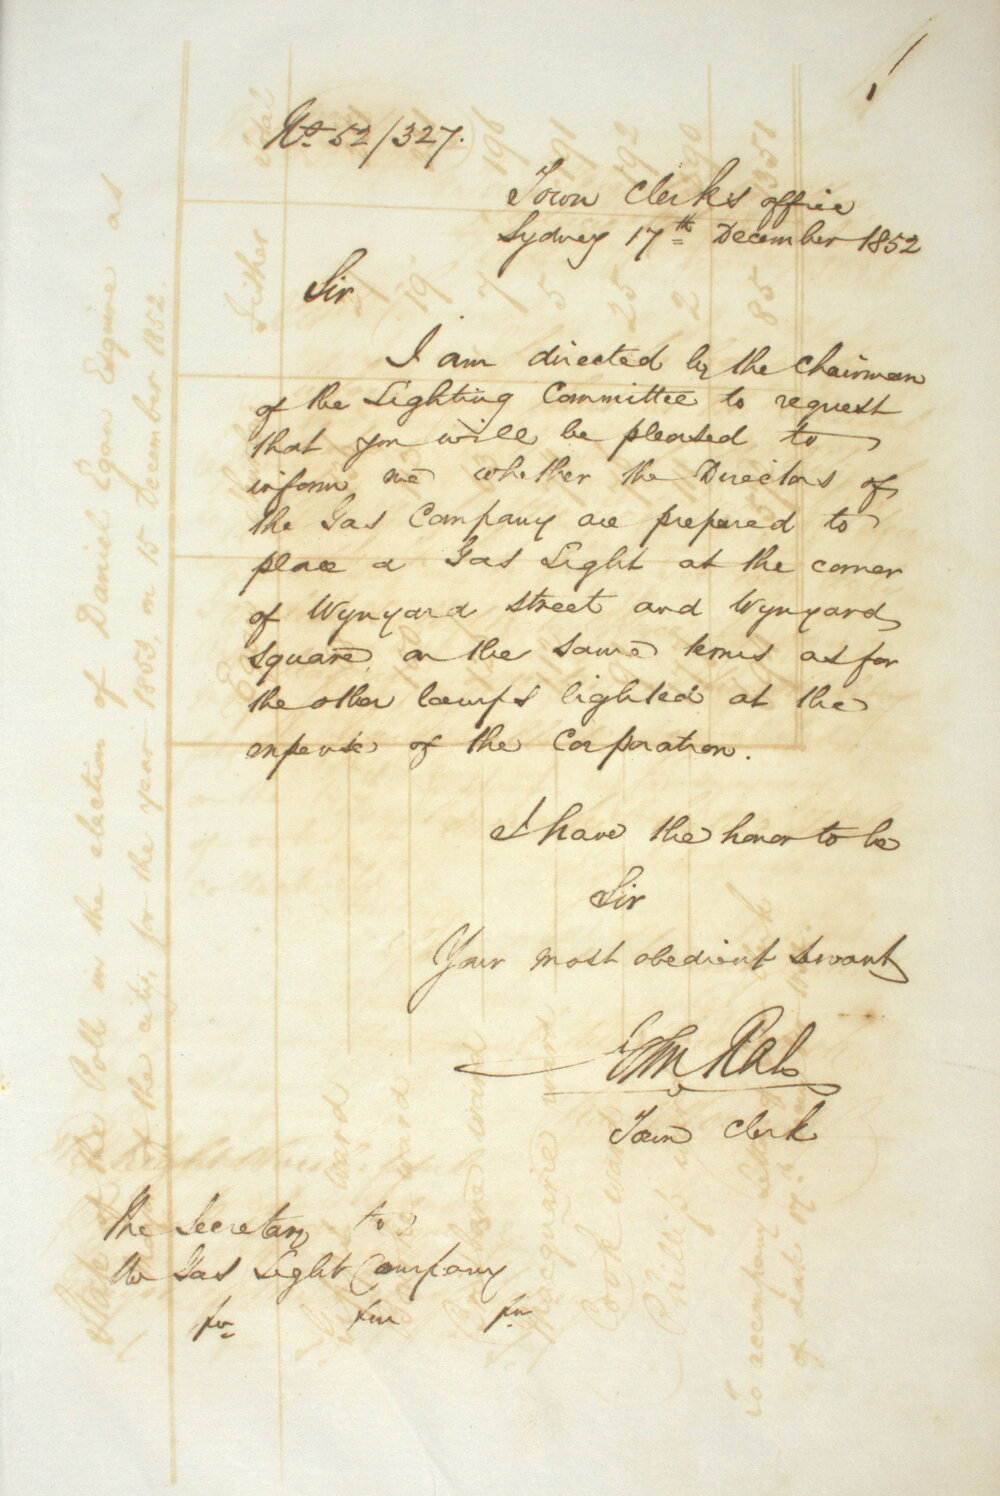 No 52/327.
Town Clerks office
Sydney 17th December 1852
Sir
I am directed by the Chairman
of the Lighting Committee to request
that you will be pleased to
inform me whether the Directors of
the Gas Company are prepared to
place a Gas Light at the corner
of Wynyard Street and Wynyard
Square on the same terms as for
the other lamps lighted at the
expense of the Corporation.
I have the honor to be
Sir
Your most obedient servant
Town Clerk
The Secretary to
the Gas Light Company
State of the Poll in the election of Daniel Egan Esquire as
of the city for the year 1853, on 15 December 1852
Macquarie ward
Cook ward
Phillip ward
to accompany letter
of date 17th